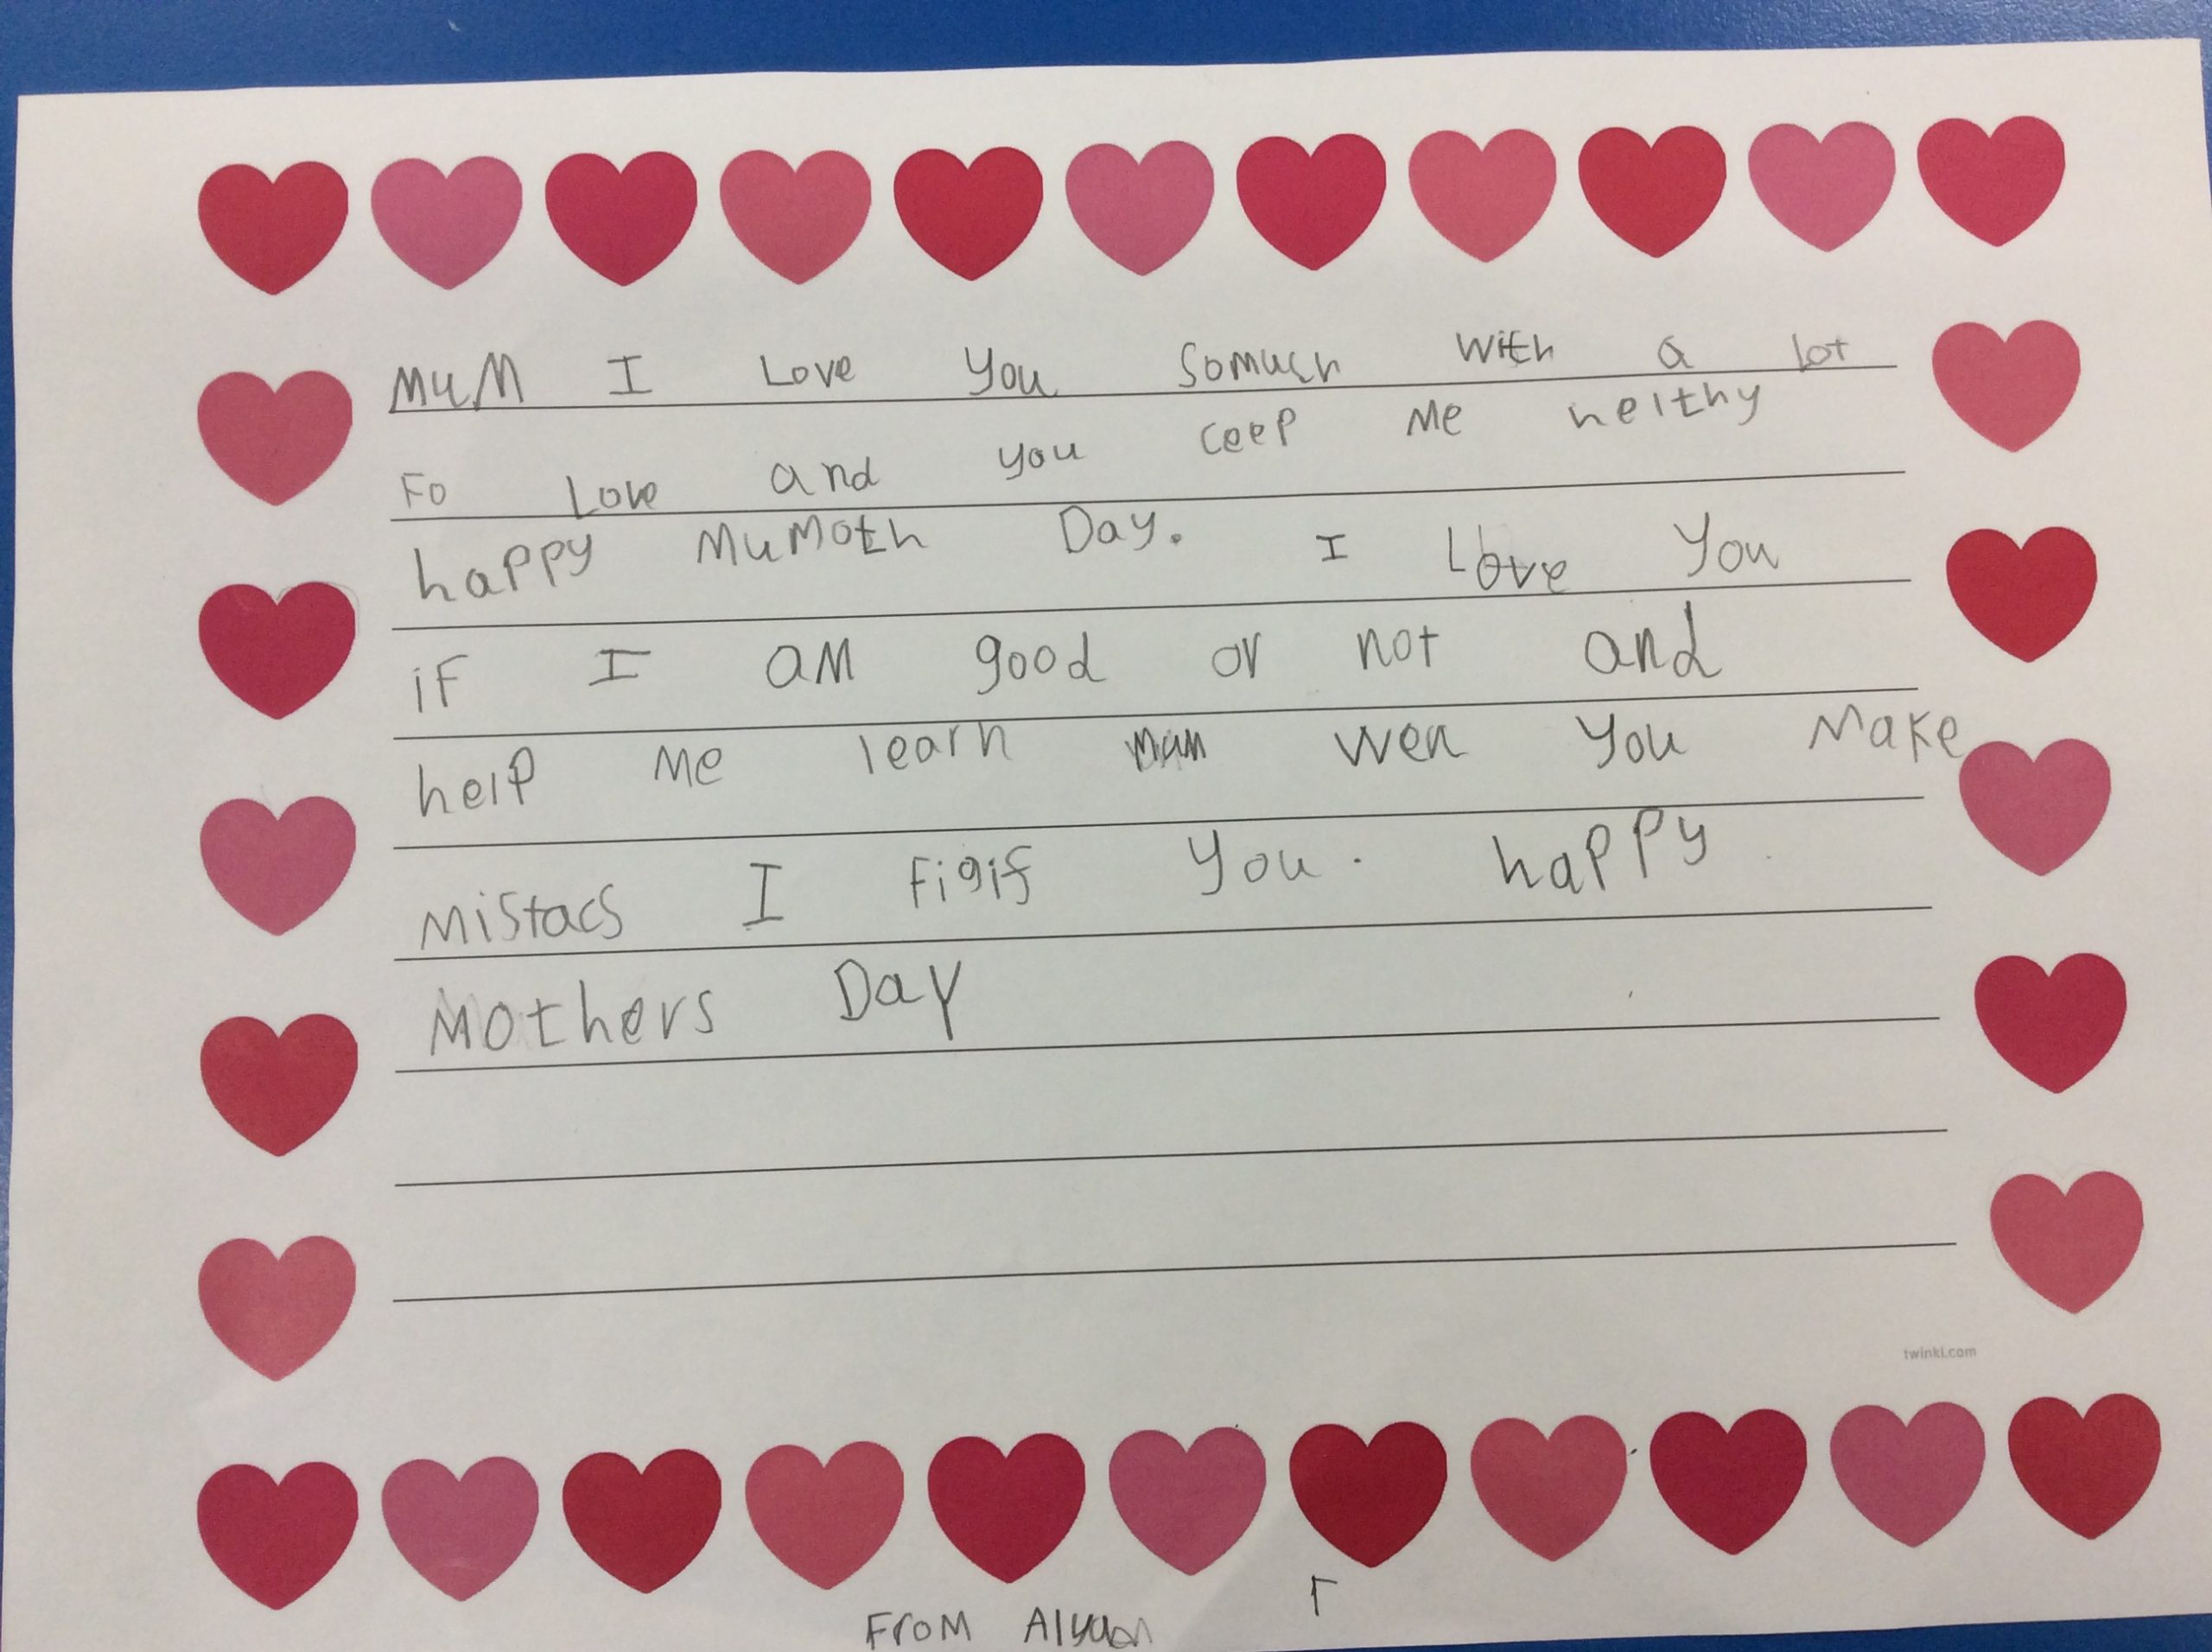 MuM I Love you Somuch with a lot
Fo Love and you ceep Me helthy
happy MuMoth Day. I Love you
iF I aM good or not and
help Me learn mum wen you Make
Mistacs I Figif you. happy
Mothers Day
twinkl.com
FroM